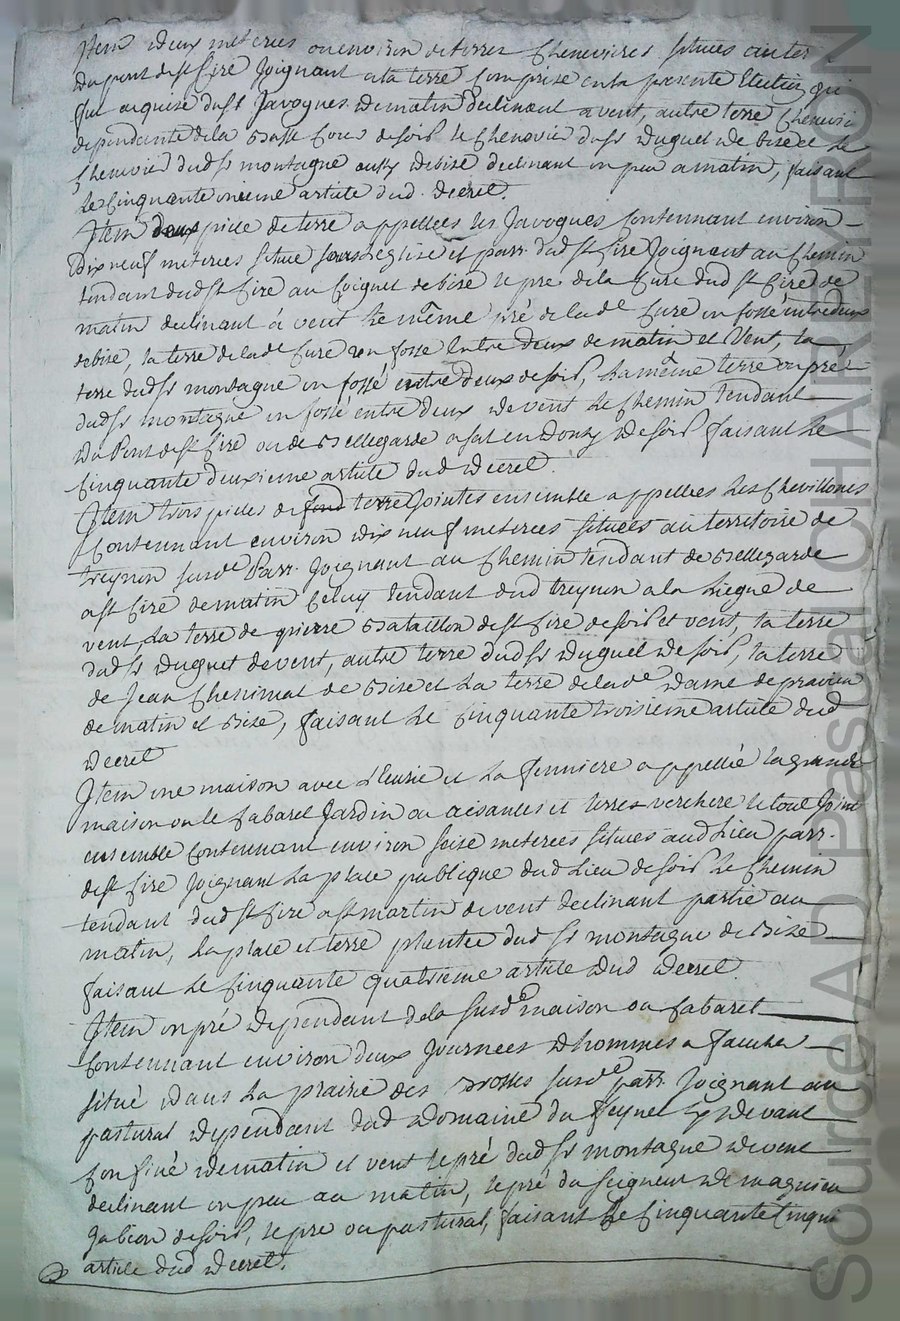 Item deux meterees ou environ de terres Chenevieres situees au ter
du pont de st Cire joignant a la terre Comprise en la presente Election qui
fut acquise du st Javogues de matin declinant a vent, autre terre Chenevie
dependante de la Basse Cour de soir le Chenevie du sr Duguet de bise et le
Chenevie dud sr montagne aussy de bise declinant un peu a matin, faisant
le Cinquante unieme article dud. decret.
Item piece de terre appellees les Javogues Contennant environ
dix neuf meterees situe sous l'eglise et parr. dud st Cire joignant au Chemin
tendant dud st Cire au Coignet de bise le pre de la Cure dud st Cire de
matin declinant à vent le même pré de lade Cure un fossé entre deux
de bise, la terre de lade Cure un fosse Entre deux de matin et Vent, la
terre dud sr montagne un fossé entre deux de soir, la même terre ou pré
dud sr montagne un fossé entre deux de vent le Chemin tendant
du Pont de st Cire ou de Bellegarde a salt en Donzy de soir faisant le
Cinquante deuxieme article dud decret.
Item trois pieces de terre Jointes ensemble appellees les Chevillones
Contennant environ dix neuf meterees situees au territoire de
treynon susde Parr. Joignant au Chemin tendant de Bellegarde
a st Cire de matin Celuy tendant dud treynon a la Liegue de
vent la terre de pierre Bataillon de st Cire de soir et vent, la terre
dud sr Duguet de vent, autre terre dud sr Duguet de soir, la terre
de Jean Chenimat de Bise et la terre de lade Dame de pravieu
de matin et Bise, faisant le Cinquante troisieme article dud
decret
Item une maison avec l'Ecurie et la fenniere appellée la grande
maison ou le Cabaret Jardin ou aisances et terres verchere le tout Joint
ensemble Contennant environ seise meterees situees aud Lieu parr.
de st Cire Joignant la place publique dud Lieu de soir le Chemin
tendant dud st Cire a st martin de vent declinant partie au
matin, la place et terre plantée dud sr montagne de Bise
faisant le Cinquante quatrieme article dud decret.
Item un pré dependant de la susde maison ou Cabaret
Contennant environ deux Journees d'hommes a faucher
situé dans la prairie des susde parr. Joignant au
pastural dependant dud Domaine du feynet Cy devant
Confiné de matin et vent le pré dud sr montagne de vent
declinant un peu au matin, le pré du seigneur de magnieu
gabion de soir, le pre ou pastural, faisant le Cinquante Cinqui
article dud decret.
Source AD Pascal CHAREYRON